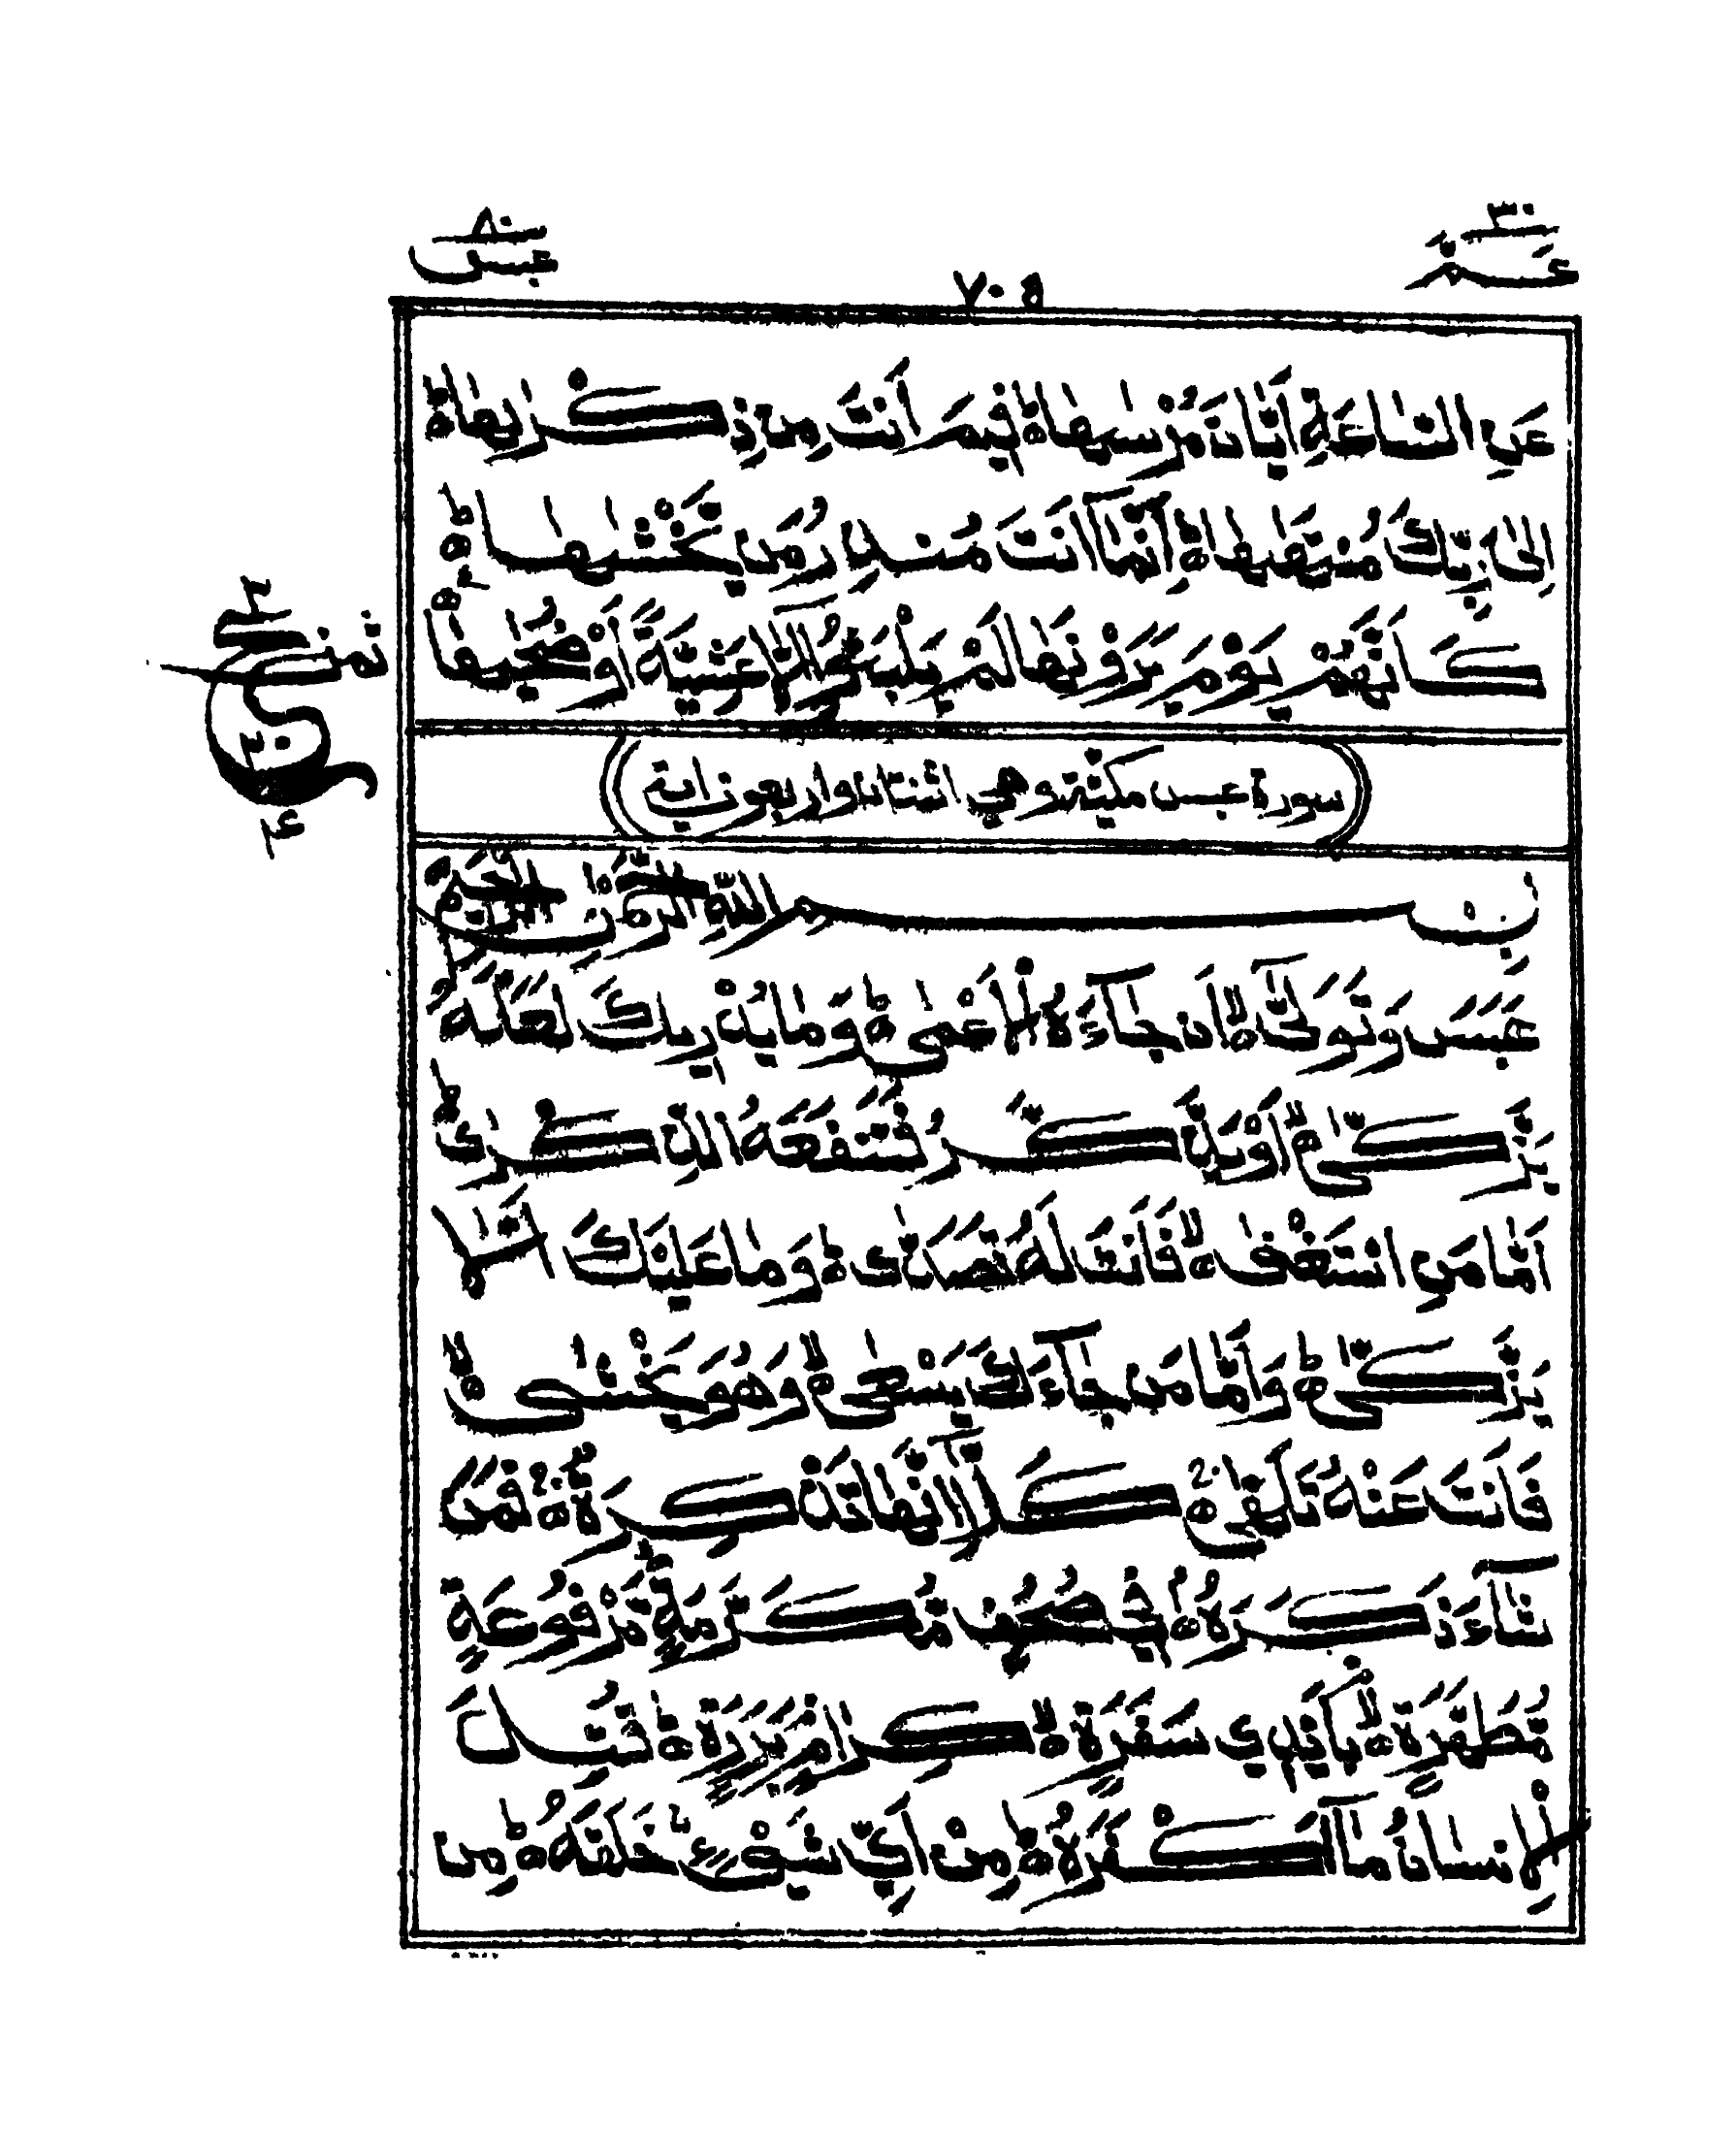 ٣٠ عَمَّ
٧٠٥
٨٠ عبس
عَنِ السَّاعَةِ اَيَّانَ مُرْسٰىهَا ۟ؕ فِيْمَ اَنْتَ مِنْ ذِكْرٰىهَا ۟ؕ
اِلٰى رَبِّكَ مُنْتَهٰىهَا ۟ؕ اِنَّمَاۤ اَنْتَ مُنْذِرُ مَنْ يَّخْشٰىهَا ۟ؕ
كَاَنَّهُمْ يَوْمَ يَرَوْنَهَا لَمْ يَلْبَثُوْۤا اِلَّا عَشِيَّةً اَوْ ضُحٰىهَا ۟
ثمن
٢
ع
٢٠
٤
سورة عبس مكية وهي اثنتان واربعون اية
بِسْمِ اللّٰهِ الرَّحْمٰنِ الرَّحِيْمِ
عَبَسَ وَتَوَلّٰۤى ۟ۙ اَنْ جَآءَهُ الْاَعْمٰى ۟ؕ وَمَا يُدْرِيْكَ لَعَلَّهٗ
يَزَّكّٰۤى ۟ۙ اَوْ يَذَّكَّرُ فَتَنْفَعَهُ الذِّكْرٰى ۟ؕ
اَمَّا مَنِ اسْتَغْنٰى ۟ۙ فَاَنْتَ لَهٗ تَصَدّٰى ۟ؕ وَمَا عَلَيْكَ اَلَّا
يَزَّكّٰى ۟ؕ وَاَمَّا مَنْ جَآءَكَ يَسْعٰى ۟ۙ وَهُوَ يَخْشٰى ۟ۙ
فَاَنْتَ عَنْهُ تَلَهّٰى ۟ۚ كَلَّاۤ اِنَّهَا تَذْكِرَةٌ ۟ۚ فَمَنْ
شَآءَ ذَكَرَهٗ ۟ۘ فِيْ صُحُفٍ مُّكَرَّمَةٍ ۟ۙ مَّرْفُوْعَةٍ
مُّطَهَّرَةٍ ۟ۙ بِاَيْدِيْ سَفَرَةٍ ۟ۙ كِرَامٍ بَرَرَةٍ ۟ؕ قُتِلَ
الْاِنْسَانُ مَاۤ اَكْفَرَهٗ ۟ؕ مِنْ اَيِّ شَيْءٍ خَلَقَهٗ ۟ؕ مِنْ